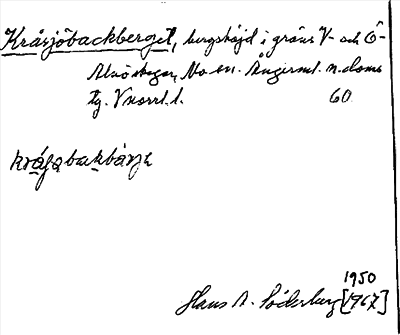 Kråsjöbackberget, bergshöjd i gräns V- och Ö-
Alnö skogar, Mo sn. Ångerml. n. doms
tg. Vnorrl. l. 60.
kráfabakbärje
1950
Hans A. Söderberg [1967]